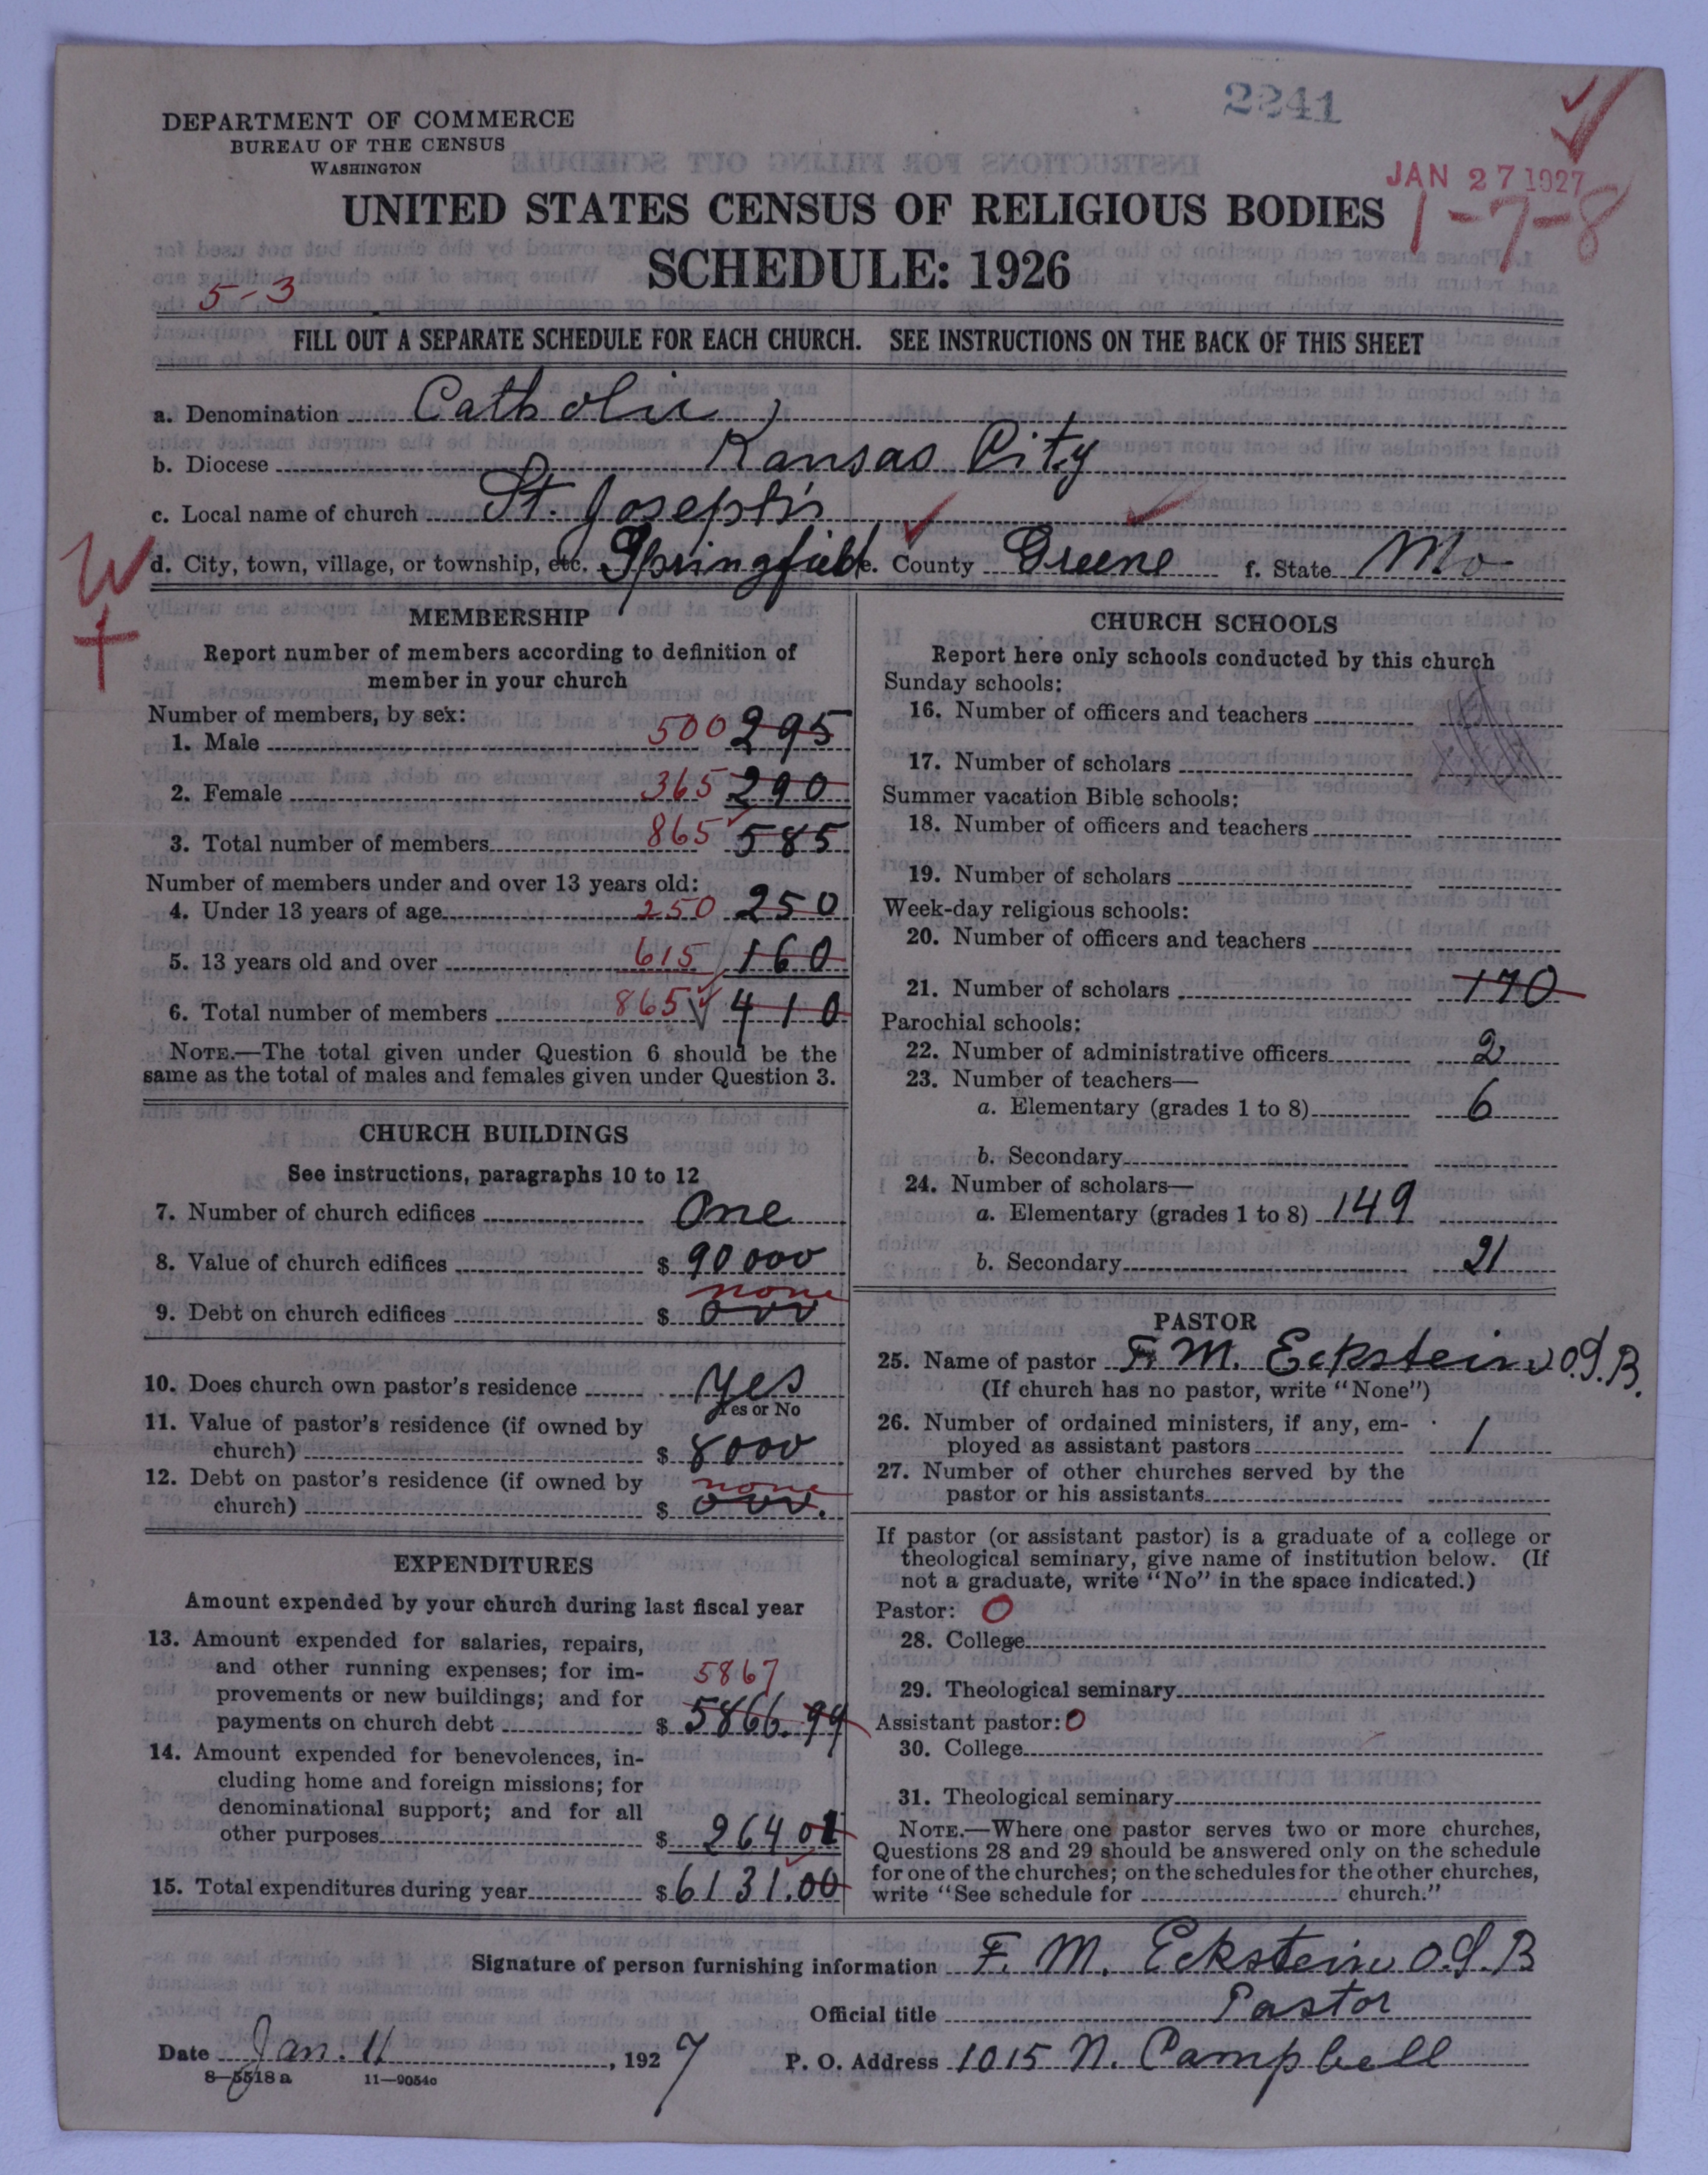 2241
DEPARTMENT OF COMMERCE
BUREAU OF THE CENSUS
WASHINGTON
JAN 27 1927
1-7-8
UNITED STATES CENSUS OF RELIGIOUS BODIES
SCHEDULE: 1926
5-3
FILL OUT A SEPARATE SCHEDULE FOR EACH CHURCH. SEE INSTRUCTIONS ON THE BACK OF THIS SHEET
a. Denomination Catholic
b. Diocese Kansas City
c. Local name of church St. Joseph's
d. City, town, village, or township, etc. Springfield e. County Greene f. State Mo
W
MEMBERSHIP
Report number of members according to definition of
member in your church
Number of members, by sex:
1. Male 500 295
2. Female 365 290
3. Total number of members 865 585
Number of members under and over 13 years old:
4. Under 13 years of age 250 250
5. 13 years old and over 615 160
6. Total number of members 865 410
NOTE.—The total given under Question 6 should be the
same as the total of males and females given under Question 3.
CHURCH BUILDINGS
See instructions, paragraphs 10 to 12
7. Number of church edifices One
8. Value of church edifices $ 90000
none
9. Debt on church edifices $ 000
10. Does church own pastor's residence Yes
Yes or No
11. Value of pastor's residence (if owned by
church) $ 8000
12. Debt on pastor's residence (if owned by none
church) $ 000.
EXPENDITURES
Amount expended by your church during last fiscal year
13. Amount expended for salaries, repairs,
and other running expenses; for im- 5867
provements or new buildings; and for
payments on church debt $ 5866.99
14. Amount expended for benevolences, in-
cluding home and foreign missions; for
denominational support; and for all
other purposes $ 264 01
15. Total expenditures during year $ 6131.00
CHURCH SCHOOLS
Report here only schools conducted by this church
Sunday schools:
16. Number of officers and teachers
17. Number of scholars
Summer vacation Bible schools:
18. Number of officers and teachers
19. Number of scholars
Week-day religious schools:
20. Number of officers and teachers
21. Number of scholars 170
Parochial schools:
22. Number of administrative officers 2
23. Number of teachers—
a. Elementary (grades 1 to 8) 6
b. Secondary
24. Number of scholars—
a. Elementary (grades 1 to 8) 149
b. Secondary 21
PASTOR
25. Name of pastor F. M. Eckstein O.S.B.
(If church has no pastor, write "None")
26. Number of ordained ministers, if any, em-
ployed as assistant pastors 1
27. Number of other churches served by the
pastor or his assistants
If pastor (or assistant pastor) is a graduate of a college or
theological seminary, give name of institution below. (If
not a graduate, write "No" in the space indicated.)
Pastor: 0
28. College
29. Theological seminary
Assistant pastor: 0
30. College
31. Theological seminary
NOTE.—Where one pastor serves two or more churches,
Questions 28 and 29 should be answered only on the schedule
for one of the churches; on the schedules for the other churches,
write "See schedule for church."
Signature of person furnishing information F. M. Eckstein O.S.B
Official title Pastor
Date Jan. 11, 1927 P. O. Address 1015 N. Campbell
8—5518 a 11—9054c